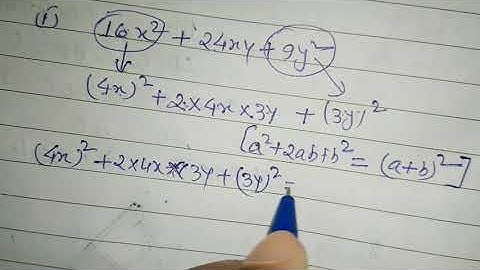 (i) 16x² + 24xy + 9y²
(4x)² + 2×4x×3y + (3y)²
[a²+2ab+b² = (a+b)²]
(4x)² + 2×4x×3y + (3y)² =